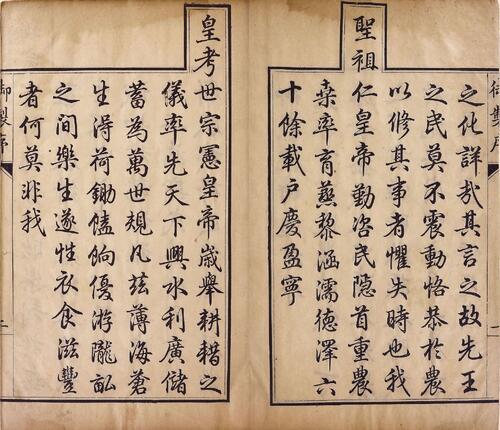 之化詳哉其言之故先王
之民莫不震動恪恭於農
以修其事者懼失時也我
聖祖仁皇帝勤咨民隱首重農
桒率育蒸黎涵濡德澤六
十餘載戶慶盈寧
皇考世宗憲皇帝歲舉耕耤之
儀率先天下興水利廣儲
蓄為萬世規凡茲薄海蒼
生得荷鋤饁餉優游隴畝
之間樂生遂性衣食滋豐
者何莫非我
御製序
二